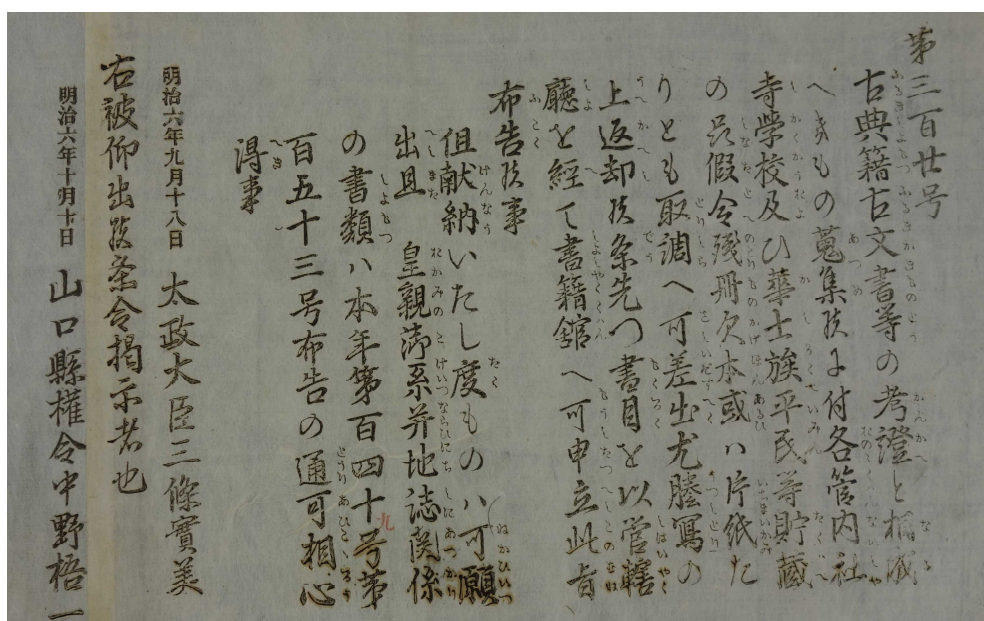 第三百廿号
古典籍古文書等の考證と相成
へきもの蒐集候に付各管内社
寺學校及ひ華士族平民等貯藏
の品假令殘冊欠本或ハ片紙た
りとも取調へ可差出尤謄寫の
上返却候条先つ書目を以管轄
廳を經て書籍舘へ可申立此旨
布告候事
但献納いたし度ものハ可願
出且　皇親御系并地誌関係
の書類ハ本年第百四十九号第
百五十三号布告の通可相心
得事
明治六年九月十八日　太政大臣三條實美
右被仰出候条令掲示者也
明治六年十月十日　山口縣權令中野梧一